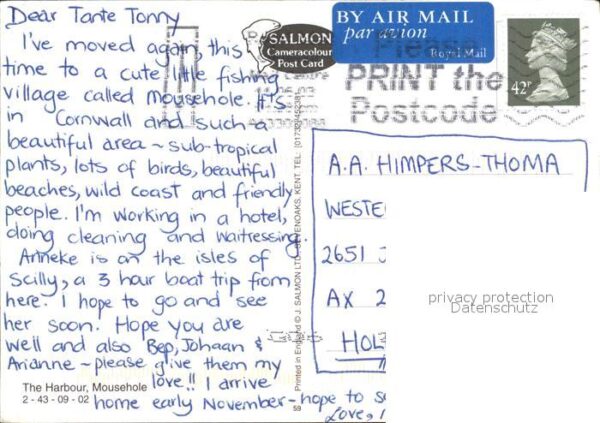 Dear Tante Tonny
I've moved again, this
time to a cute little fishing
village called mousehole. It's
in Cornwall and such a
beautiful area ~ sub-tropical
plants, lots of birds, beautiful
beaches, wild coast and friendly
people. I'm working in a hotel,
doing cleaning and waitressing.
Anneke is on the isles of
Scilly, a 3 hour boat trip from
here. I hope to go and see
her soon. Hope you are
well and also Bep, Johaan &
Arianne ~ please give them my
love!! I arrive
home early November - hope to s
Love,
The Harbour, Mousehole
2 - 43 - 09 - 02
SALMON
Cameracolour
Post Card
59 Printed in England © J. SALMON LTD. SEVENOAKS. KENT. TEL:
BY AIR MAIL
par avion
Royal Mail
Please
PRINT the
Postcode
42P
A.A. HIMPERS-THOMA
WESTE
2651
AX 2
HOL
privacy protection
Datenschutz